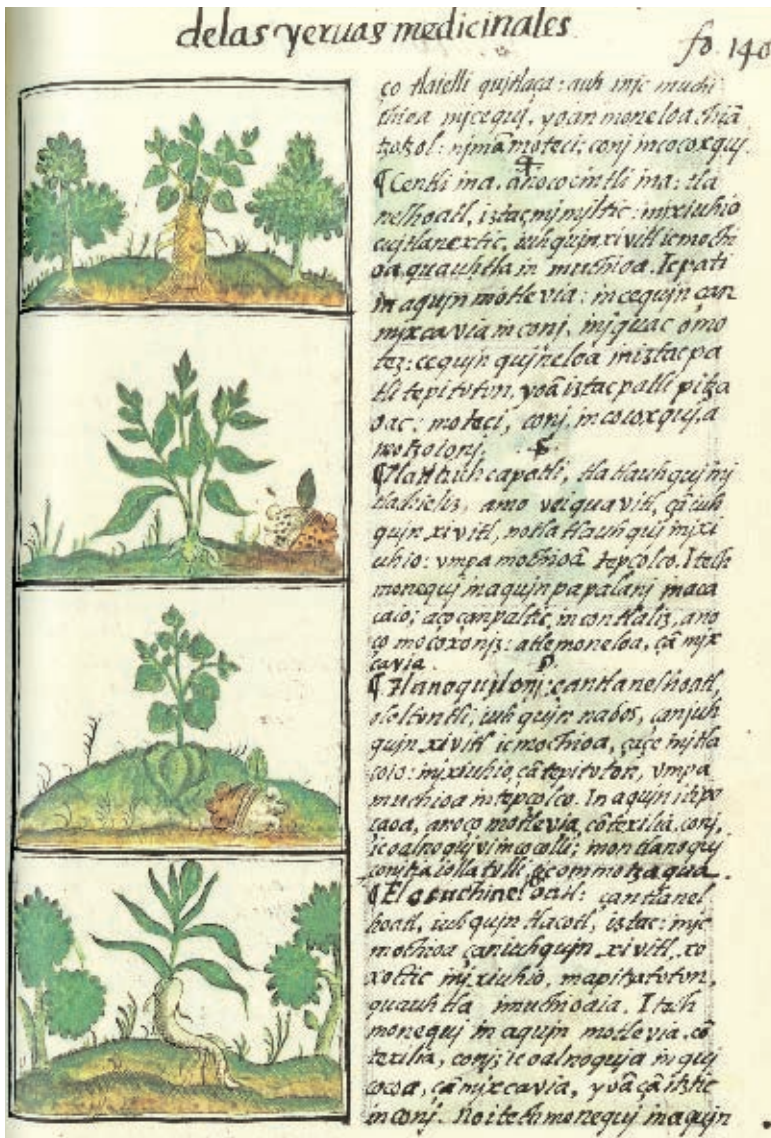 delas yeruas medicinales
fo. 140
ço tlaielli quitlaça: auh injc muchi
thioa mjcequj, yoan moneloa chiã
tzotzol: njmã moteci: conj in cocoxquj.
¶ Centli ina. anoço cintli ina: tla
nelhoatl, iztac mjmjltic: injxiuhio
cujtlanextic, iuhqujn xivitl ic mochi
oa, quauhtla in muchioa. Ic pati
in aqujn motlevia: in cequjn çan
mjxcavia in conj, injquac omo
tez: cequjn qujneloa in iztac pa
tli tepitoton, yoã iztac patli pitza
oac: moteci, conj, in cocoxquj, a
motzoionj.
¶ Tlatlauhcapatli, tlatlauhquj inj
tlanelhoaio, amo vei quavitl, çã iuh
qujn xivitl, no tlatlauhquj injxi
uhio: vmpa mochioa tepcolco. Itech
monequj in aqujn papalanj inaca
caio; aço çan paltic, in contlaliz, ano
ço mocoxonjz: atle moneloa, çã mjx
cavia.
¶ Tlanoqujlonj: çan tlanelhoatl,
ololtontli, iuhqujn nabos, çan iuh
qujn xivitl ic mochioa, çaçe injtla
coio: injxiuhio, çã tepitoton, vmpa
muchioa in tepcolco. In aqujn itipo
caoa, anoço motlevia, cõtexilia, conj,
ic oalnoqujvi in cocolli; in ontlanoquj
conjtza iolatulli,
¶ Elosuchineloatl: çan tlanel
hoatl, iuhqujn tlacotl, iztac: injc
mochioa çan iuhqujn xivitl, xo
xoctic injxiuhio, mapitzatoton,
quauhtla in muchioaia. Itech
monequj in aqujn motlevia, cõ
texilia, conj; ic oalnoquja in quj
cocoa, çã mjxcavia, yoã çã itztic
in conj. No itech monequj in aqujn